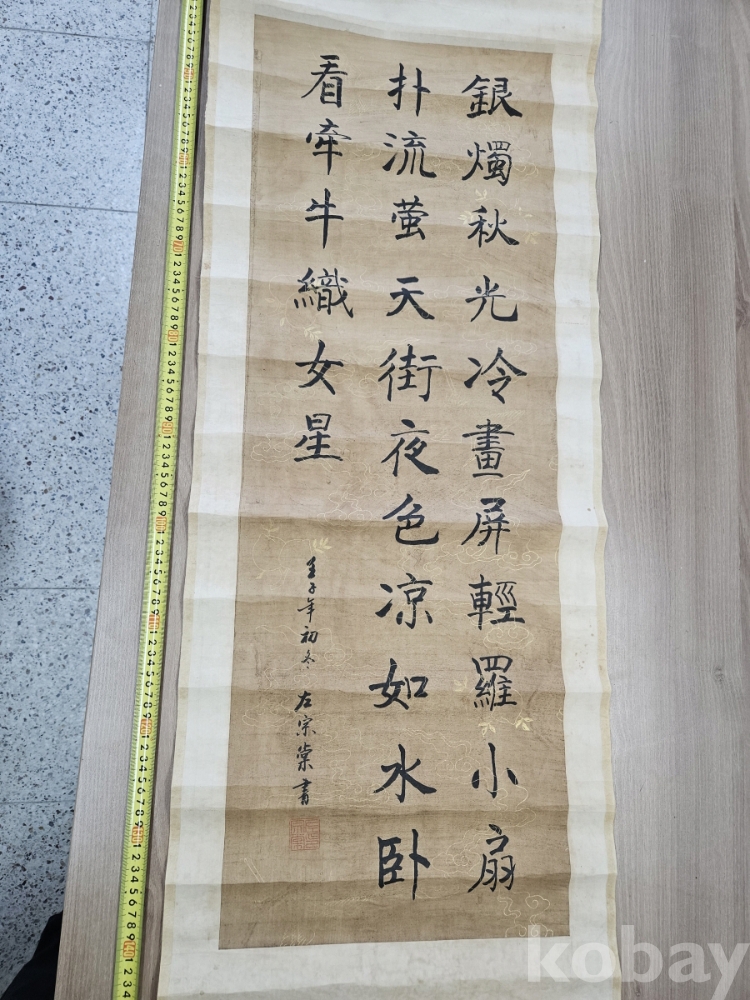 銀燭秋光冷畫屏輕羅小扇
扑流萤天街夜色凉如水卧
看牵牛織女星
壬子年初冬 左宗棠書
kobay